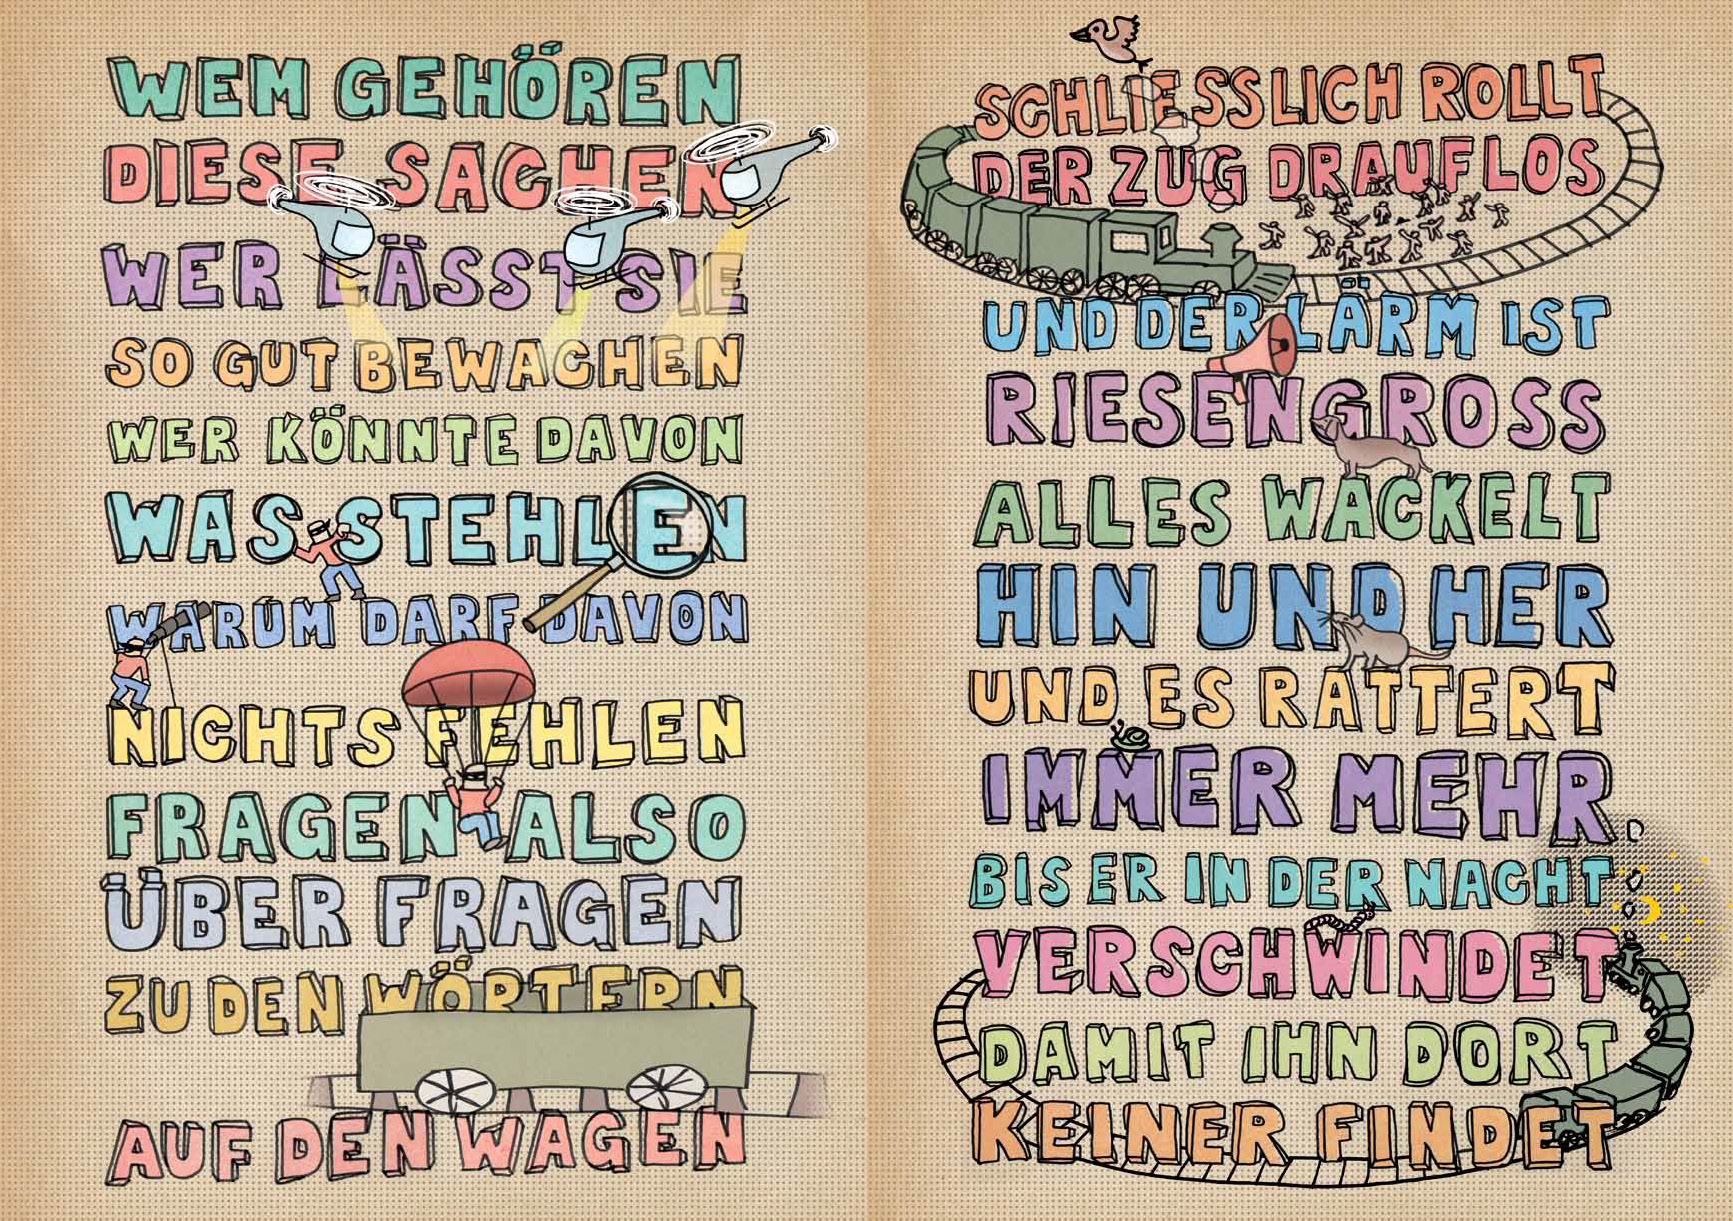 WEM GEHÖREN
DIESE SACHEN
WER LÄSST SIE
SO GUT BEWACHEN
WER KÖNNTE DAVON
WAS STEHLEN
WARUM DARF DAVON
NICHTS FEHLEN
FRAGEN ALSO
ÜBER FRAGEN
ZU DEN WÖRTERN
AUF DEN WAGEN
SCHLIESSLICH ROLLT
DER ZUG DRAUFLOS
UND DER LÄRM IST
RIESENGROSS
ALLES WACKELT
HIN UND HER
UND ES RATTERT
IMMER MEHR
BIS ER IN DER NACHT
VERSCHWINDET
DAMIT IHN DORT
KEINER FINDET